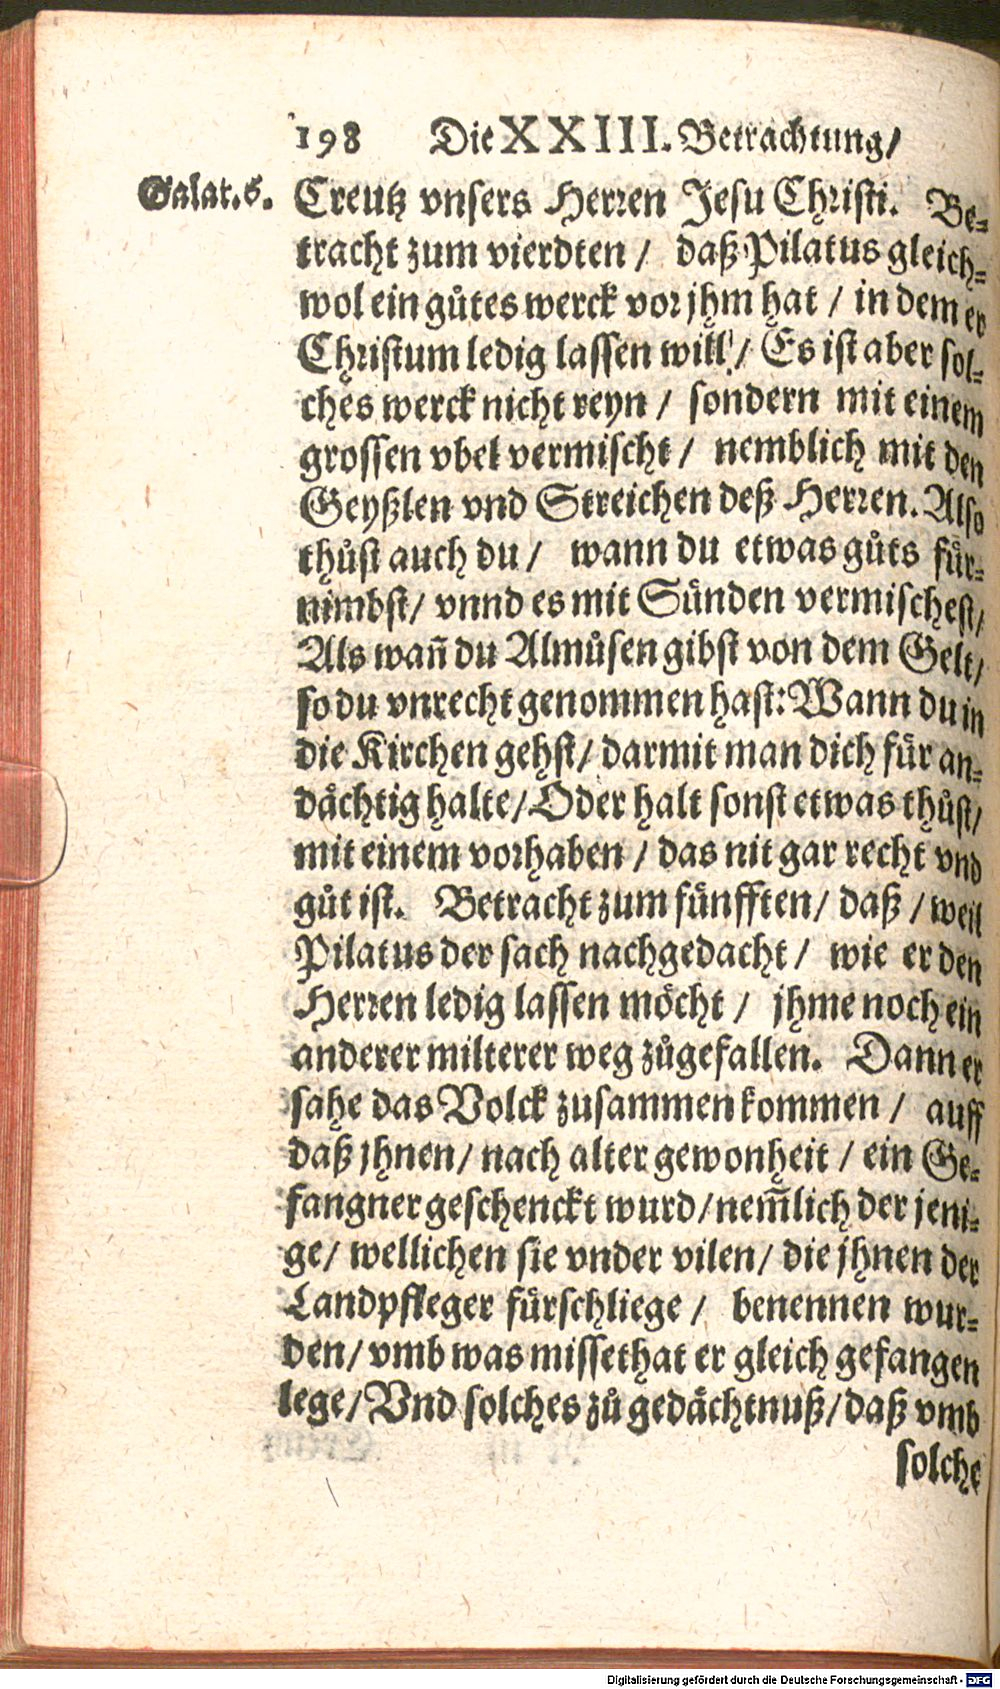 198 Die XXIII. Betrachtung/
Galat. 6.
Creutz vnsers Herren Jesu Christi. Be-
tracht zum vierdten / daß Pilatus gleich-
wol ein gůtes werck vor jhm hat / in dem er
Christum ledig lassen will / Es ist aber sol-
ches werck nicht reyn / sondern mit einem
grossen vbel vermischt / nemblich mit den
Geyßlen vnd Streichen deß Herren. Also
thůst auch du / wann du etwas gůts fůr-
nimbst / vnnd es mit Sünden vermischest /
Als wañ du Almůsen gibst von dem Gelt /
so du vnrecht genommen hast: Wann du in
die Kirchen gehst / darmit man dich für an-
dächtig halte / Oder halt sonst etwas thůst /
mit einem vorhaben / das nit gar recht vnd
gůt ist. Betracht zum fünfften / daß / weil
Pilatus der sach nachgedacht / wie er den
Herren ledig lassen möcht / jhme noch ein
anderer milterer weg zůgefallen. Dann er
sahe das Volck zusammen kommen / auff
daß jhnen / nach alter gewonheit / ein Ge-
fangner geschenckt wurd / nem̃lich der jeni-
ge / wellichen sie vnder vilen / die jhnen der
Landpfleger fürschliege / benennen wur-
den / vmb was missethat er gleich gefangen
lege / Vnd solches zů gedächtnuß / daß vmb
solche
Digitalisierung gefördert durch die Deutsche Forschungsgemeinschaft - DFG